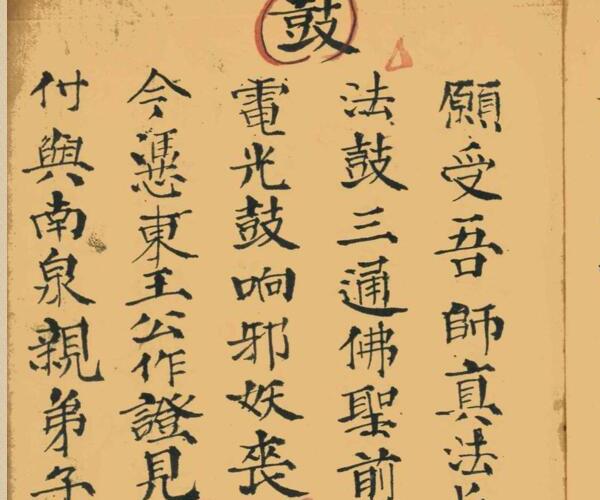 鼓
願受吾師真法
法鼓三通佛聖前
電光鼓响邪妖喪
今憑東王公作證見
付與南泉親弟子